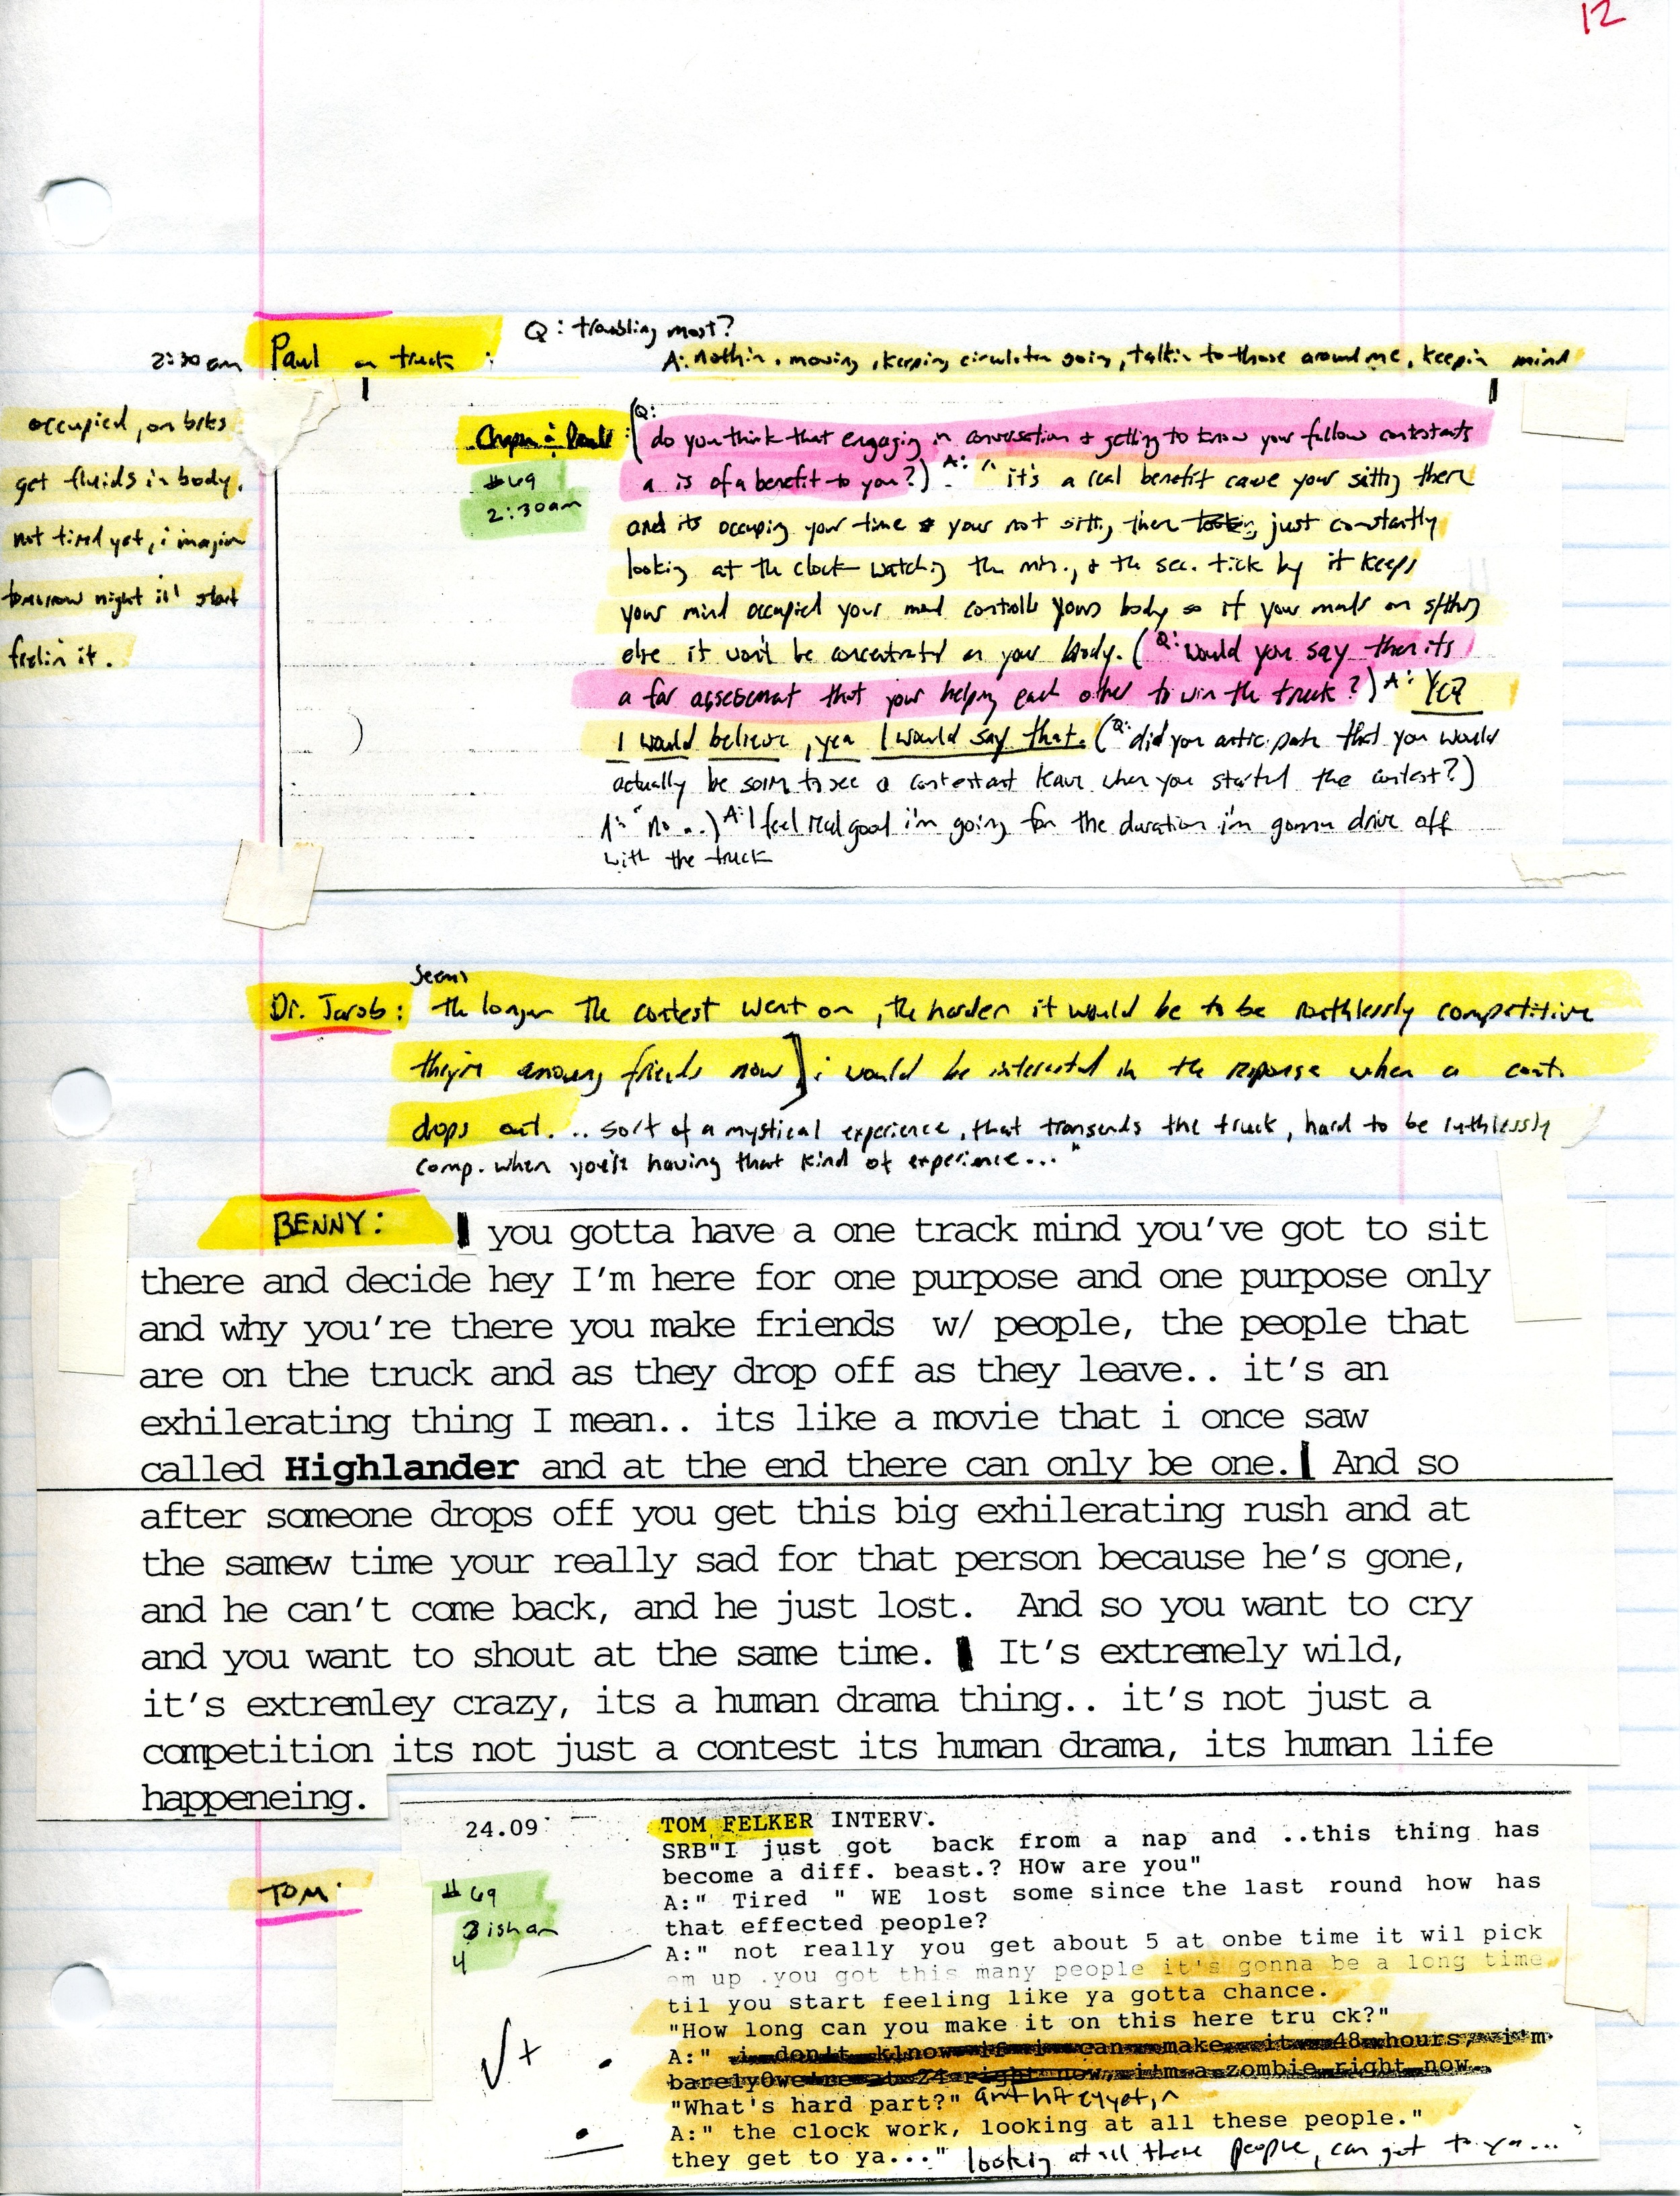 12
Q: troubling most?
2:30am Paul on truck : A: nothin, moving, keeping circulation going, talkin to those around me, keepin mind
occupied, on bites
get fluids in body,
not tired yet, i imagine
tomorrow night i'l start
feelin it.
#69
2:30am
(Q:
do you think that engaging in conversation & getting to know your fellow contestants
a is of a benefit to you?) A: "it's a real benefit cause your sitting there
and its occuping your time & your not sitting there just constantly
looking at the clock watching the min., & the sec. tick by it keeps
your mind occupied your mind controlls your body so if your minds on s/thing
else it won't be concentrated on your body. (Q: would you say then its
a fair assessment that your helping each other to win the truck?) A: Yea
I would believe, yea I would say that. (Q: did you anticipate that you would
actually be sorry to see a contestant leave when you started the contest?)
A: "no ..) A: I feel real good i'm going for the duration i'm gonna drive off
with the truck
seems
Dr. Jacob: the longer the contest went on, the harder it would be to be ruthlessly competitive
they're among friends now] i would be interested in the response when a cont.
drops out. .. sort of a mystical experience, that transends the truck, hard to be ruthlessly
comp. when you're having that kind of experience..."
BENNY: you gotta have a one track mind you've got to sit
there and decide hey I'm here for one purpose and one purpose only
and why you're there you make friends w/ people, the people that
are on the truck and as they drop off as they leave.. it's an
exhilerating thing I mean.. its like a movie that i once saw
called Highlander and at the end there can only be one. And so
after someone drops off you get this big exhilerating rush and at
the samew time your really sad for that person because he's gone,
and he can't come back, and he just lost. And so you want to cry
and you want to shout at the same time. It's extremely wild,
it's extremley crazy, its a human drama thing.. it's not just a
competition its not just a contest its human drama, its human life
happeneing.
24.09
TOM FELKER INTERV.
SRB"I just got back from a nap and ..this thing has
become a diff. beast.? HOw are you"
TOM:
#69
3ish am
4
A:" Tired " WE lost some since the last round how has
that effected people?
A:" not really you get about 5 at onbe time it wil pick
em up .you got this many people it's gonna be a long time
til you start feeling like ya gotta chance.
"How long can you make it on this here tru ck?"
A:" i don't k1now if i can make it 48 hours, i'm
barely0we're at 24 right now, i'm a zombie right now.
"What's hard part?"
A:" the clock work, looking at all these people."
they get to ya..." looking at all these people, can get to ya...